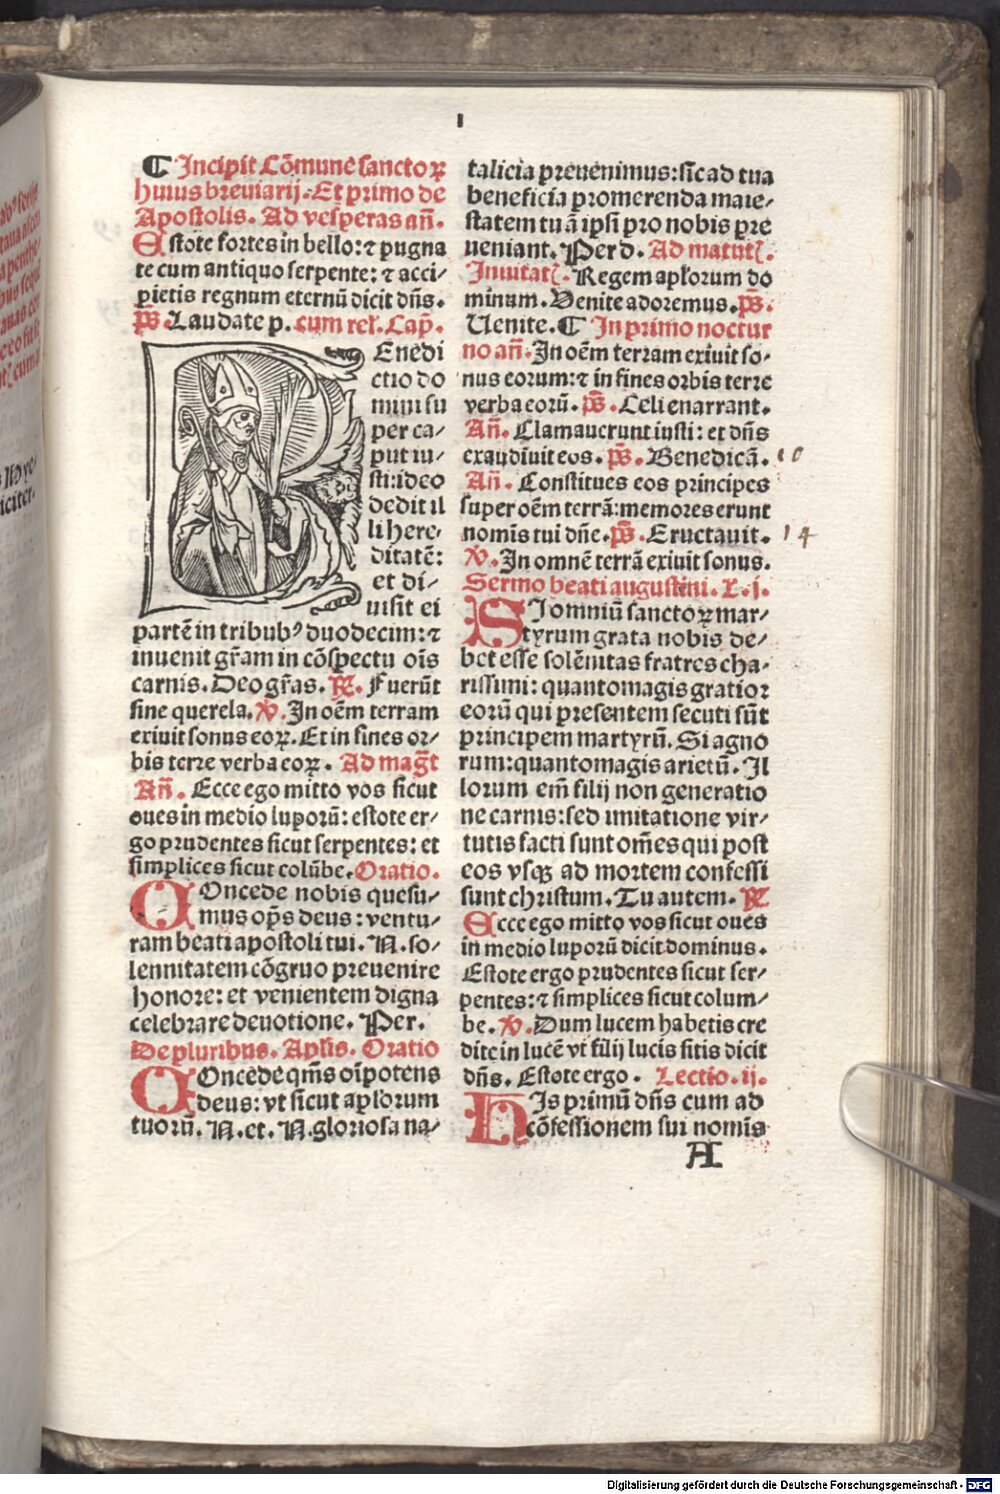 I
¶ Incipit Cõmune sanctoꝝ
huius breviarij. Et primo de
Apostolis. Ad vesperas añ.
Estote fortes in bello: ⁊ pugna
te cum antiquo serpente: ⁊ acci-
pietis regnum eternũ dicit dñs.
ps̃. Laudate p. cum rel̃. Cap̃.
BEnedi
ctio do
mini su
per ca-
put iu-
sti: ideo
dedit il
li here-
ditatē:
et di-
uisit ei
partē in tribubꝰ duodecim: ⁊
inuenit gr̃am in cõspectu ois̃
carnis. Deo gr̃as. ℟. Fuerũt
sine querela. ℣. In oẽm terram
exiuit sonus eoꝝ. Et in fines or-
bis terre verba eoꝝ. Ad mag̃t
Añ. Ecce ego mitto vos sicut
oues in medio luporũ: estote er-
go prudentes sicut serpentes: et
simplices sicut colũbe. Oratio.
COncede nobis quesu-
mus op̃s deus: ventu-
ram beati apostoli tui. N. so-
lennitatem cõgruo preuenire
honore: et venientem digna
celebrare deuotione. Per.
De pluribus. Apl̃is. Oratio
COncede qm̃s oĩpotens
deus: vt sicut apl̃orum
tuorũ. N. et. N. gloriosa na-
talicia preuenimus: sic ad tua
beneficia promerenda maie-
statem tuã ipsi pro nobis pre
ueniant. Per d. Ad matutꝭ.
Inuitatꝭ. Regem apl̃orum do
minum. Venite adoremus. ps̃.
Uenite. ¶ In primo noctur
no añ. In oẽm terram exiuit so-
nus eorum: ⁊ in fines orbis terre
verba eorũ. ps̃. Celi enarrant.
Añ. Clamauerunt iusti: et dñs
exaudiuit eos. ps̃. Benedicã. 10
Añ. Constitues eos principes
super oẽm terrã: memores erunt
nomĩs tui dñe. ps̃. Eructauit. 14
℣. In omnẽ terrã exiuit sonus.
Sermo beati augustini. L. j.
SI omniũ sanctoꝝ mar-
tyrum grata nobis de-
bet esse solẽnitas fratres cha-
rissimi: quantomagis gratior
eorũ qui presentem secuti sũt
principem martyrũ. Si agno
rum: quantomagis arietũ. Il
lorum em̃ filij non generatio
ne carnis: sed imitatione vir-
tutis facti sunt om̃es qui post
eos vsqꝫ ad mortem confessi
sunt christum. Tu autem. ℟.
Ecce ego mitto vos sicut oues
in medio luporũ dicit dominus.
Estote ergo prudentes sicut ser-
pentes: ⁊ simplices sicut colum-
be. ℣. Dum lucem habetis cre
dite in lucẽ vt filij lucis sitis dicit
dñs. Estote ergo. Lectio. ij.
HIs primũ dñs cum ad
cõfessionem sui nomĩs
A
Digitalisierung gefördert durch die Deutsche Forschungsgemeinschaft - DFG